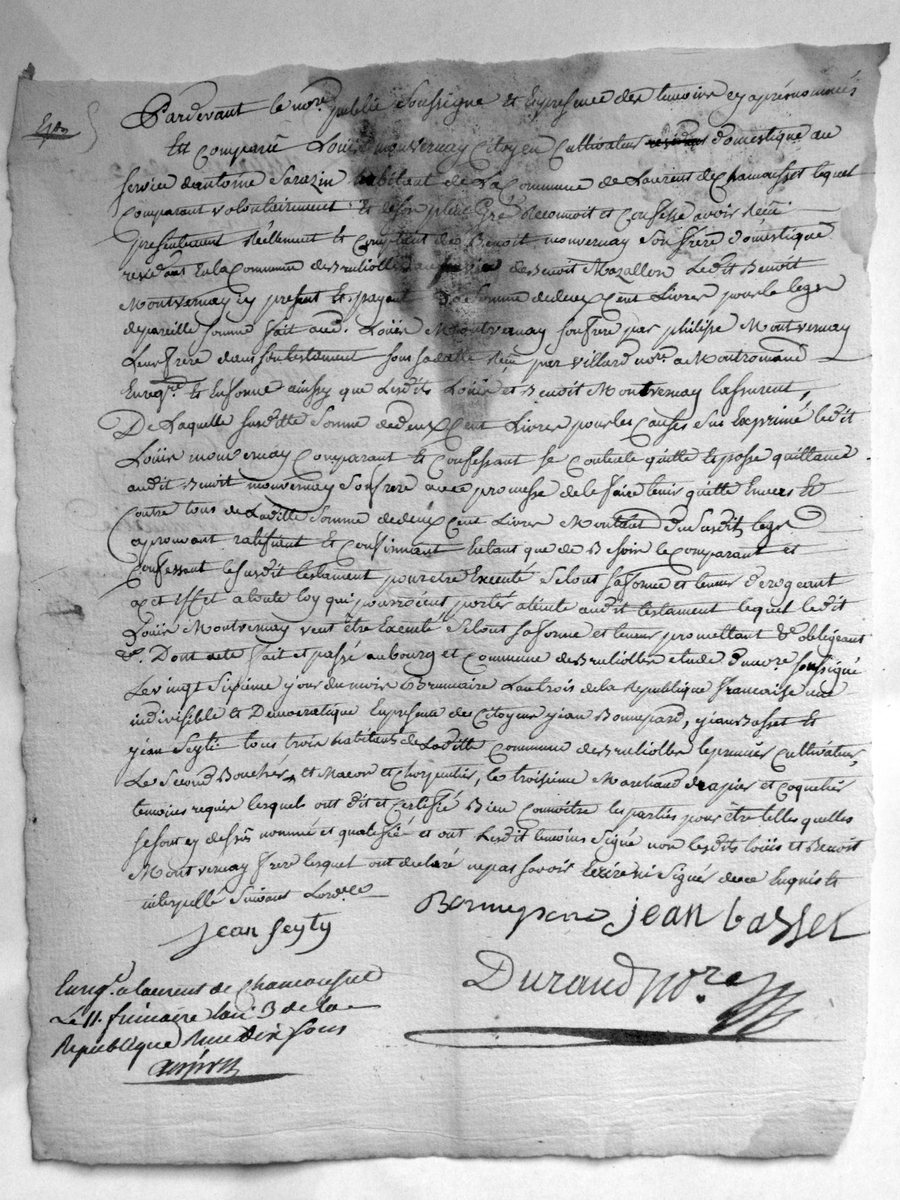 Expon
Pardevant le nore public soussigné et en presence des temoins cy aprés nommés
Est comparu Louis monvernay Citoyen Cultivateur domestique au
service d'antoine Sarazin habitant de La Commune de Laurent de Chamousset lequel
comparant volontairement et de son plein Gré Reconnoit et confesse avoir Recu
presentement Réellement et comptant de Benoit monvernay son frère domestique
residant En la Commune de Brulliolles au service de Benoit Mazallon Ledit Benoit
Montvernay cy present et payant La somme de deux Cent Livres pour le legs
de pareille somme fait aud. Loüis Montvernay son frere par philipe Montvernay
Leur frere dans son testament sous sa datte Recu par Villard nore a Montromand
Enregre et En forme ainsy que Lesdits Loüis et Benoit Montvernay L'assurent,
De Laquelle susditte somme de deux Cent Livres pour les causes sus Exprimé ledit
Loüis monvernay comparant et confessant se contente quitte et passe quittance
audit Benoit monvernay son frere avec promesse de le faire tenir quitte Envers et
Contre tous de Laditte somme de deux Cent Livres Montant du susdit legs
aprouvant ratifiant et confirmant En tant que de Besoin le comparant et
confessant le susdit testament pour etre Executé selont sa forme et teneur derogeant
a cet Effet a toute loy qui pourroient porter atinte audit testament lequel ledit
Loüis Montvernay veut être Executé selont sa forme et teneur promettant & obligeant
&. Dont acte fait et passé au bourg et commune de Brulliolles etude du nore soussigné
Le vingt sixième jour du mois Brumaire L'an trois de la Republique francaise une
indivisible et Democratique En presence des Citoyens jean Bonnepard, jean Basset et
jean Seyti tous trois habitans de Laditte Commune de Brulliolles le premier Cultivateur,
Le second Boucher et Macon et Charpentier, le troisième Marchand drapier et coquetier
temoins requis lesquels ont dit et certifié Bien connoitre les parties pour être telles quelles
se sont cy dessus nommé et qualifié et ont Lesdit temoins signé non lesdits loüis et Benoit
Montvernay frere lesquel ont declaré ne pas savoir Ecrire ni signer de ce Enquis et
interpellé suivant L'ord.ce
Bonnepard jean basset
jean seyty
Durand nore
Enregé a laurent de chamousset
Le 11. frimaire l'an 3 de la
Republique Recu dix sous